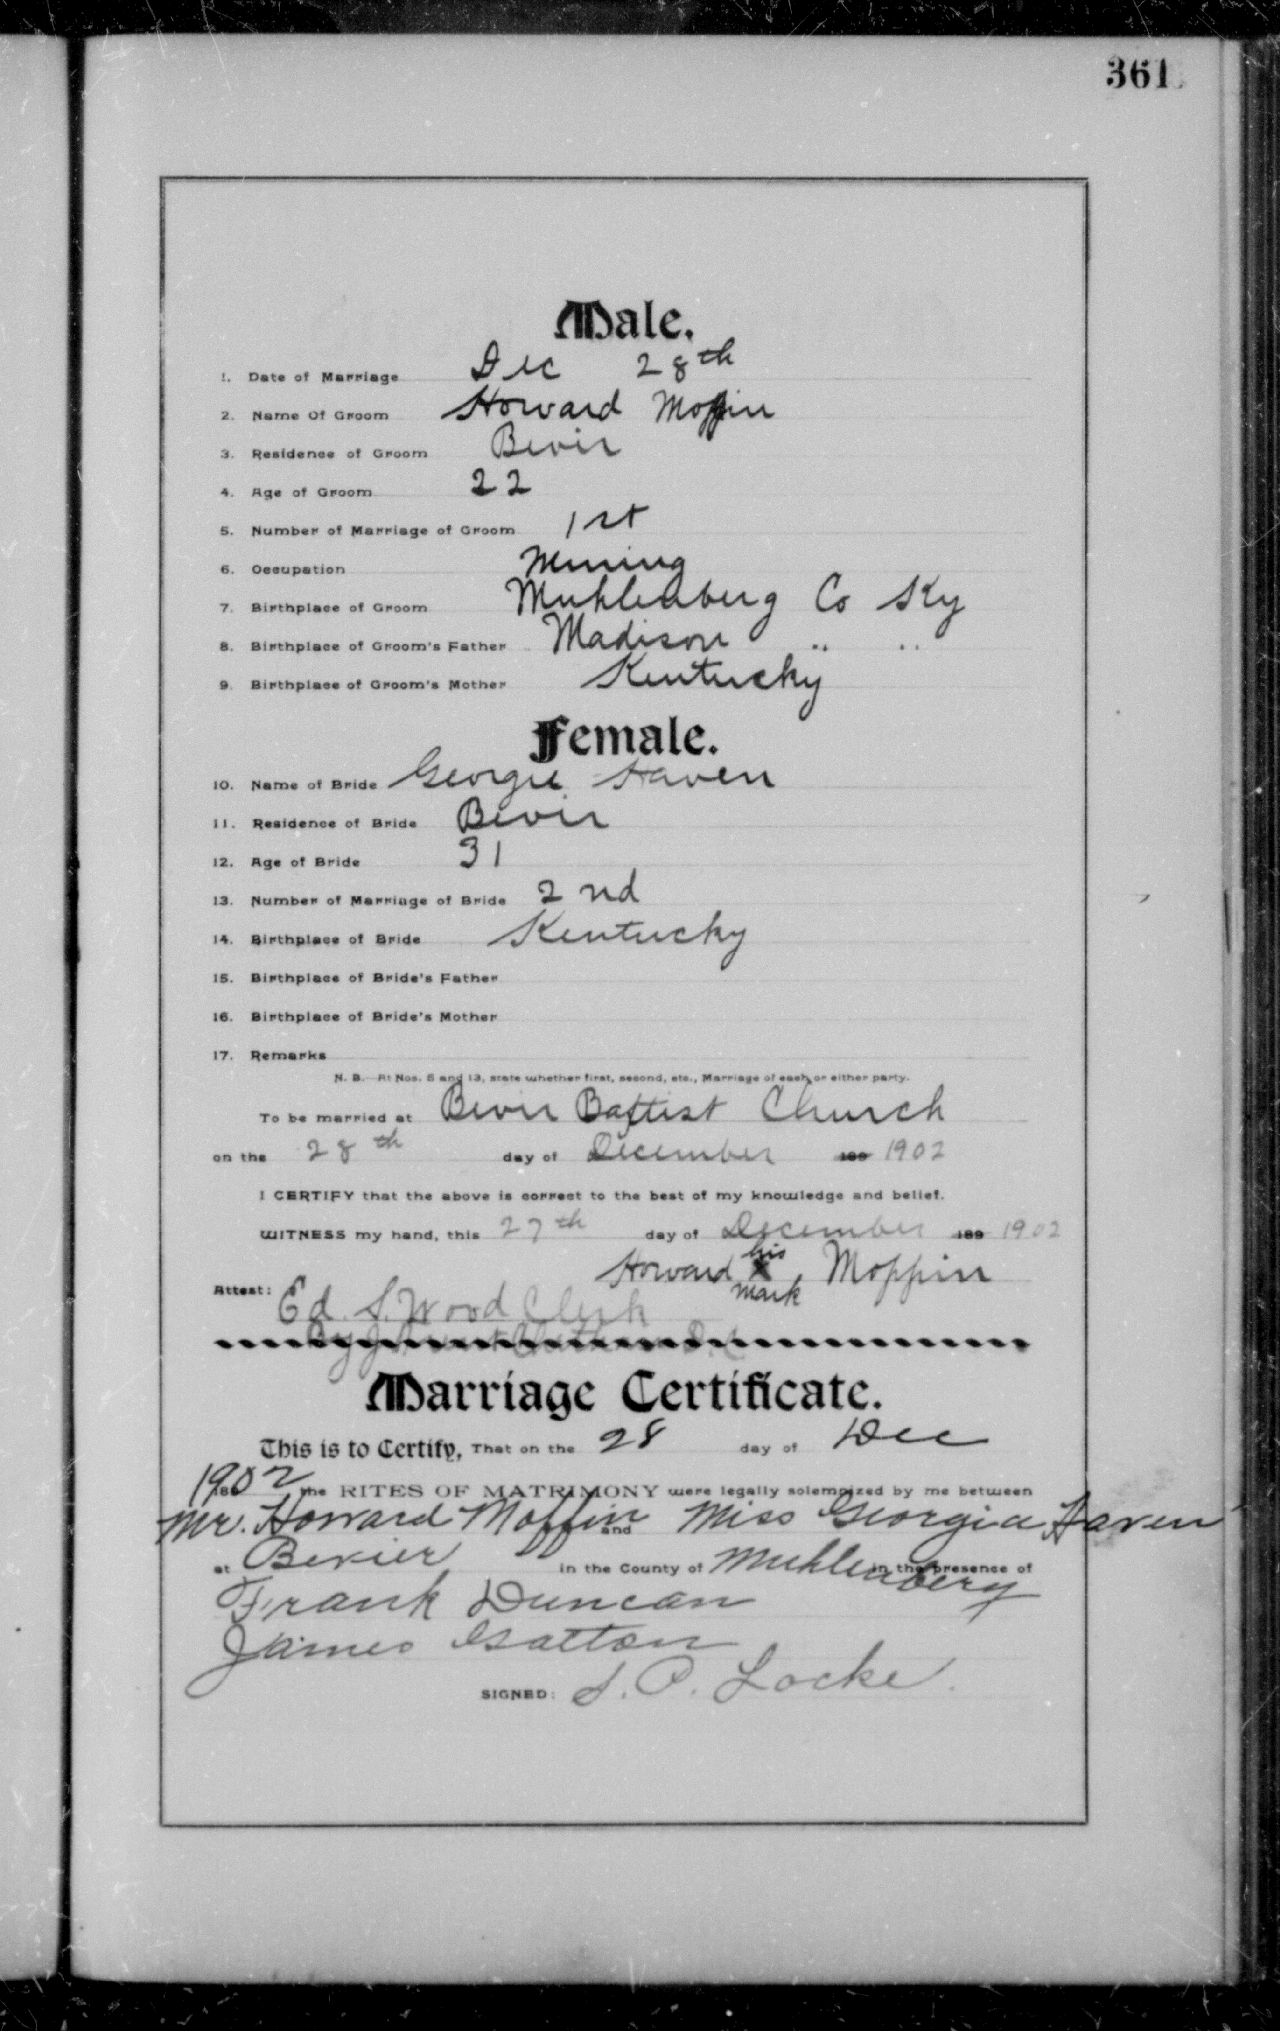 361
Male.
1. Date of Marriage Dec 28th
2. Name Of Groom Howard Moppin
3. Residence of Groom Bevir
4. Age of Groom 22
5. Number of Marriage of Groom 1st
6. Occupation Mining
7. Birthplace of Groom Muhlenberg Co Ky
8. Birthplace of Groom's Father Madison " "
9. Birthplace of Groom's Mother Kentucky
Female.
10. Name of Bride Georgie Haven
11. Residence of Bride Bevir
12. Age of Bride 31
13. Number of Marriage of Bride 2nd
14. Birthplace of Bride Kentucky
15. Birthplace of Bride's Father
16. Birthplace of Bride's Mother
17. Remarks
N. B.—At Nos. 5 and 13, state whether first, second, etc., Marriage of each or either party.
To be married at Bevir Baptist Church
on the 28th day of December 189 1902
I CERTIFY that the above is correct to the best of my knowledge and belief.
WITNESS my hand, this 27th day of December 189 1902
Howard his X mark Moppin
Attest: Ed. S. Wood Clerk
By D.C.
Marriage Certificate.
This is to Certify, That on the 28 day of Dec
1902 the RITES OF MATRIMONY were legally solemnized by me between
Mr. Howard Moffin and Miss Georgia Haven
at Bevier in the County of Muhlenberg in the presence of
Frank Duncan
James Gatton
SIGNED: S. P. Locke.